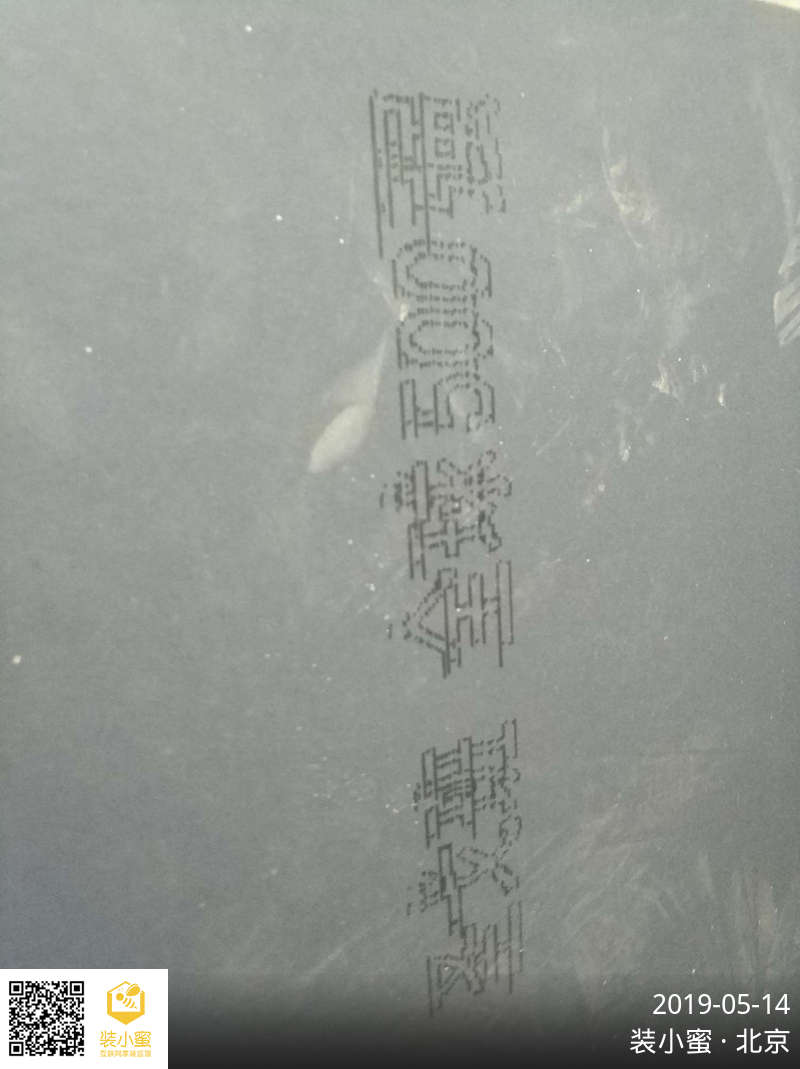 全球500强
装小蜜
互联网家装监理
2019-05-14
装小蜜·北京